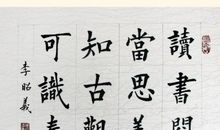 讀書問
當思美
知古觀
可識
李昭義